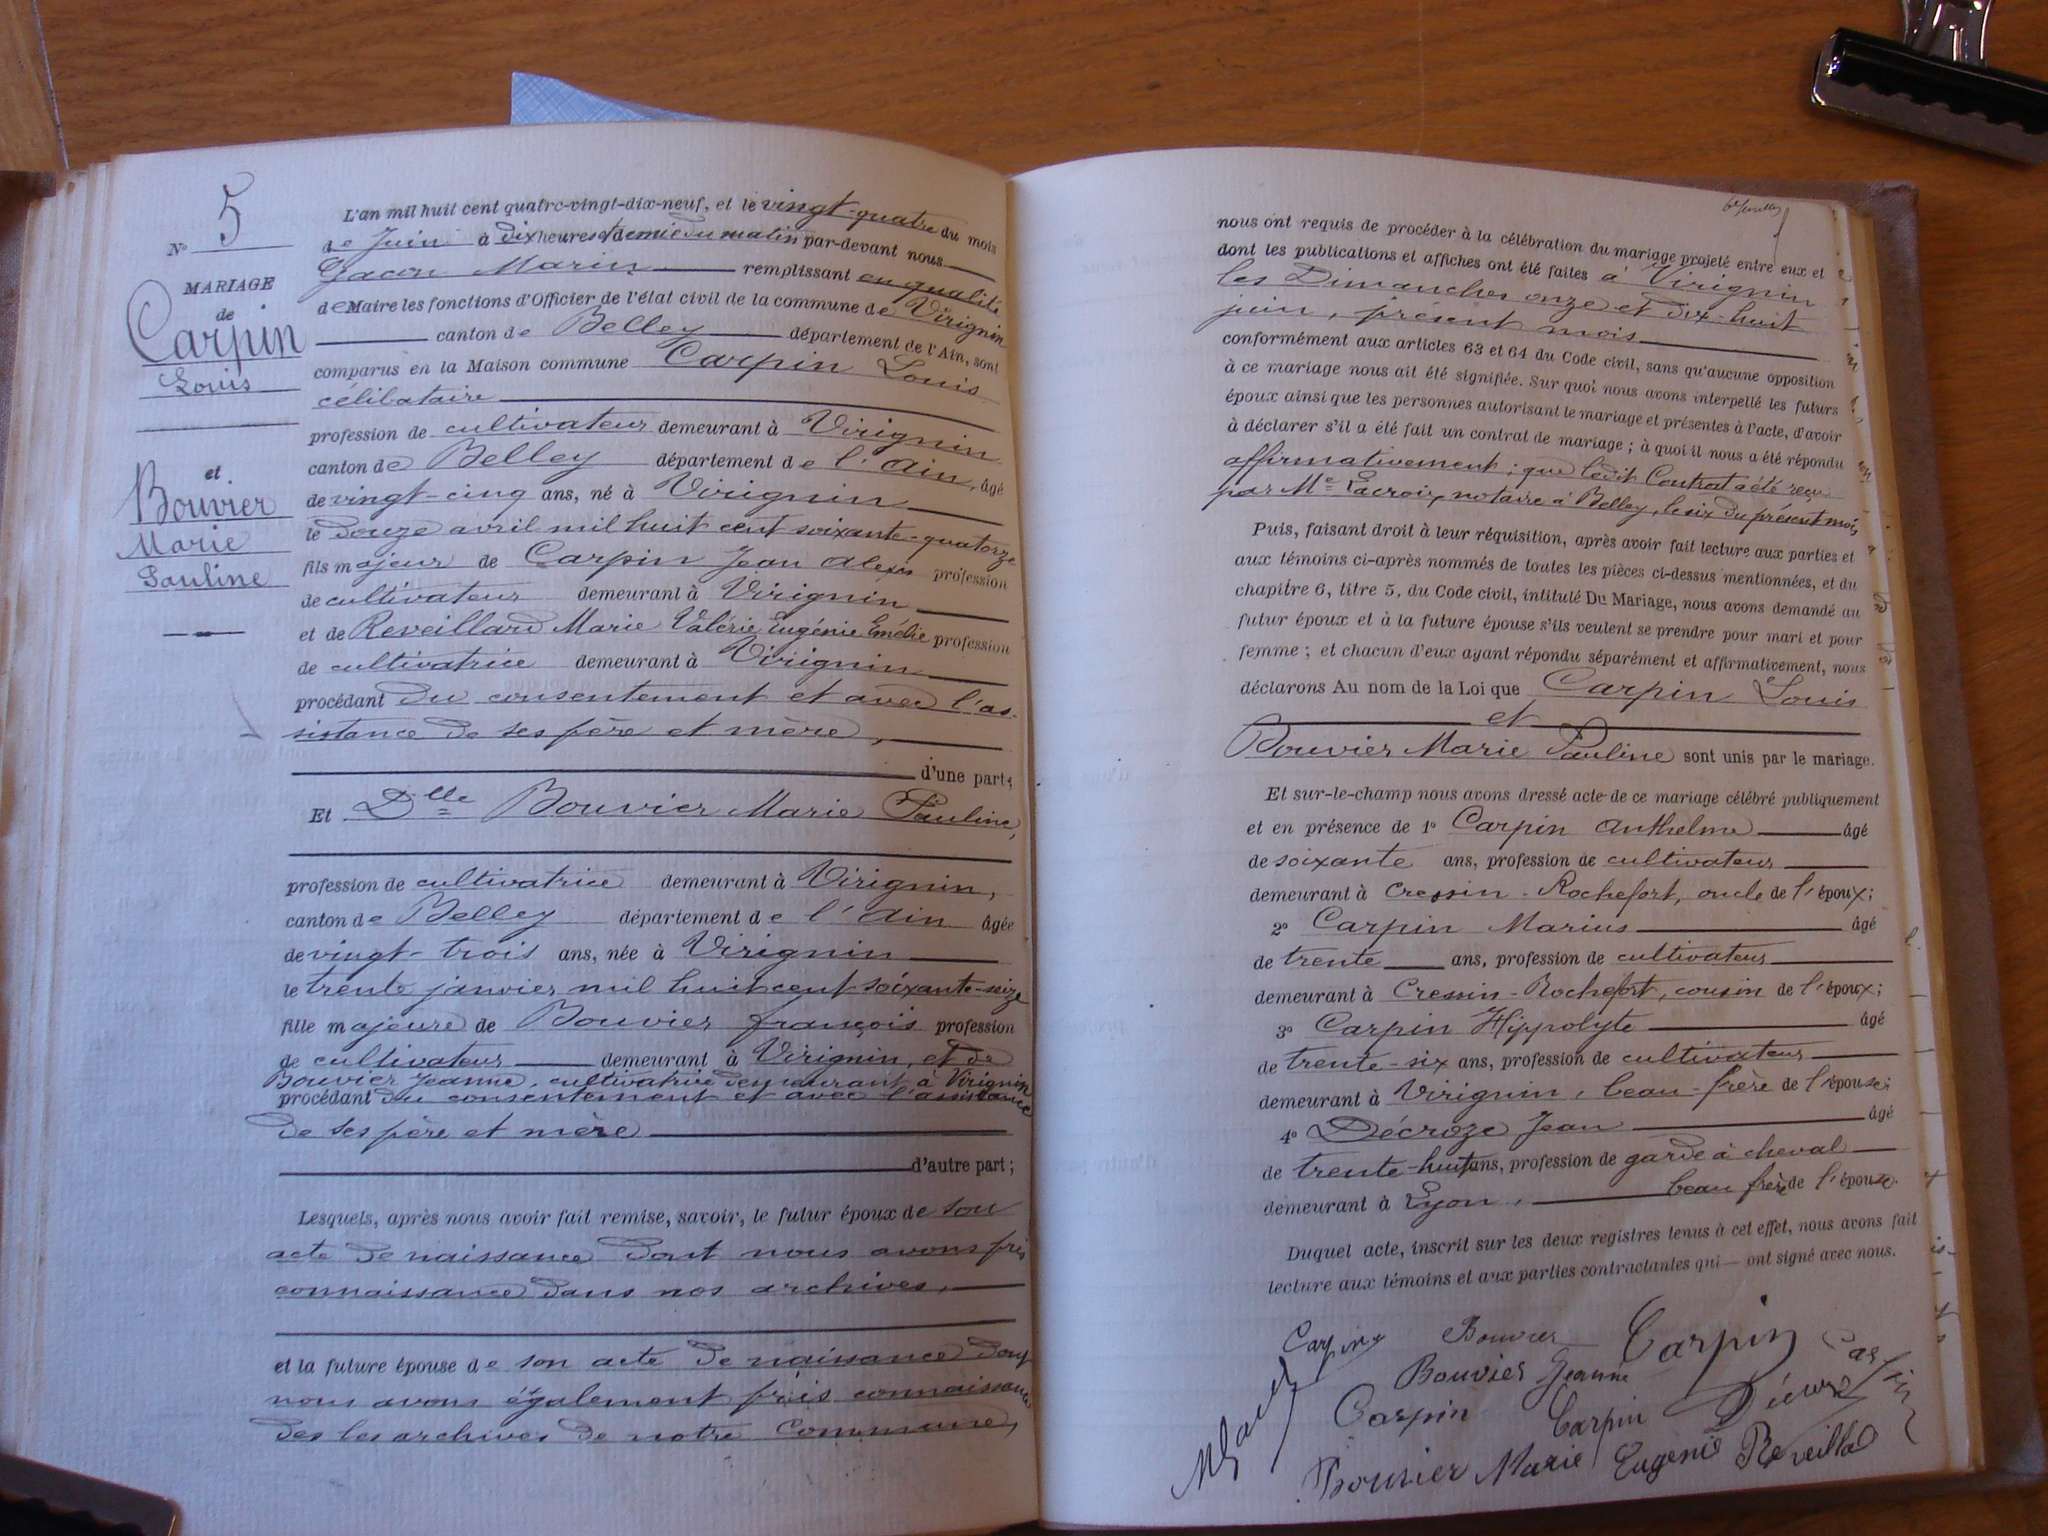 N° 5
MARIAGE
de
Carpin
Louis
et
Bouvier
Marie
Pauline
L'an mil huit cent quatre-vingt-dix-neuf, et le vingt-quatre du mois
de Juin à dix heures et demie du matin par-devant nous
Gacon Marin remplissant en qualité
de Maire les fonctions d'Officier de l'état civil de la commune de Virignin
canton de Belley département de l'Ain, sont
comparus en la Maison commune Carpin Louis
célibataire
profession de cultivateur demeurant à Virignin
canton de Belley département de l'Ain, âgé
de vingt-cinq ans, né à Virignin
le douze avril mil huit cent soixante-quatorze
fils majeur de Carpin Jean Alexis profession
de cultivateur demeurant à Virignin
et de Reveillard Marie Valérie Eugénie Emélie profession
de cultivatrice demeurant à Virignin
procédant du consentement et avec l'as-
sistance de ses père et mère,
d'une part;
Et Dlle Bouvier Marie Pauline,
profession de cultivatrice demeurant à Virignin,
canton de Belley département de l'Ain âgée
de vingt-trois ans, née à Virignin
le trente janvier mil huit cent soixante-seize
fille majeure de Bouvier françois profession
de cultivateur demeurant à Virignin, et de
Bouvier Jeanne, cultivatrice demeurant à Virignin
procédant du consentement et avec l'assistance
de ses père et mère
d'autre part;
Lesquels, après nous avoir fait remise, savoir, le futur époux de son
acte de naissance dont nous avons pris
connaissance dans nos archives,
et la future épouse de son acte de naissance dont
nous avons également pris connaissance
des les archives de notre commune,
nous ont requis de procéder à la célébration du mariage projeté entre eux et
dont les publications et affiches ont été faites à Virignin
les Dimanches onze et dix-huit
juin, présent mois
conformément aux articles 63 et 64 du Code civil, sans qu'aucune opposition
à ce mariage nous ait été signifiée. Sur quoi nous avons interpellé les futurs
époux ainsi que les personnes autorisant le mariage et présentes à l'acte, d'avoir
à déclarer s'il a été fait un contrat de mariage; à quoi il nous a été répondu
affirmativement; que ledit Contrat a été reçu
par Me Lacroix, notaire à Belley, le six du présent mois,
Puis, faisant droit à leur réquisition, après avoir fait lecture aux parties et
aux témoins ci-après nommés de toutes les pièces ci-dessus mentionnées, et du
chapitre 6, titre 5, du Code civil, intitulé Du Mariage, nous avons demandé au
futur époux et à la future épouse s'ils veulent se prendre pour mari et pour
femme; et chacun d'eux ayant répondu séparément et affirmativement, nous
déclarons Au nom de la Loi que Carpin Louis
et
Bouvier Marie Pauline sont unis par le mariage.
Et sur-le-champ nous avons dressé acte de ce mariage célébré publiquement
et en présence de 1° Carpin Anthelme âgé
de soixante ans, profession de cultivateur
demeurant à Cressin-Rochefort, oncle de l'époux;
2° Carpin Marius âgé
de trente ans, profession de cultivateur
demeurant à Cressin-Rochefort, cousin de l'époux;
3° Carpin Hippolyte âgé
de trente-six ans, profession de cultivateur
demeurant à Virignin, beau-frère de l'épouse;
4° Décroze Jean âgé
de trente-huit ans, profession de garde à cheval
demeurant à Lyon, beau frère de l'épouse.
Duquel acte, inscrit sur les deux registres tenus à cet effet, nous avons fait
lecture aux témoins et aux parties contractantes qui — ont signé avec nous.
Carpin Bouvier Carpin Carpin
Bouvier Jeanne
Carpin Carpin Décroze
Bouvier Marie Eugénie Reveillad